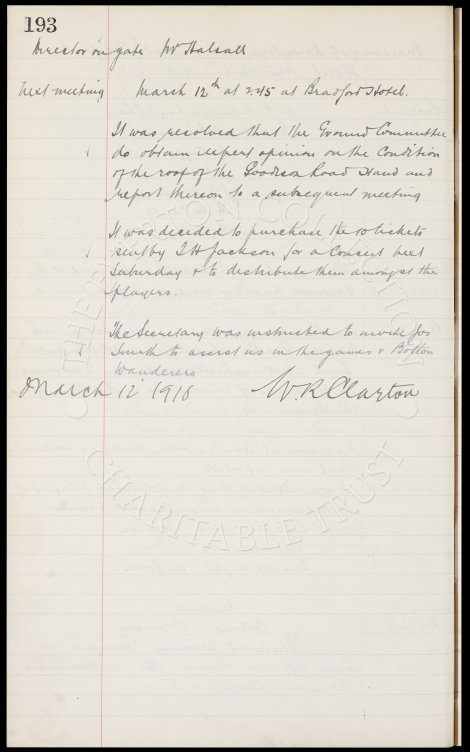 193
Director on gate Mr Halsall
Next meeting March 12th at 2.45 at Bradford Hotel.
It was resolved that the Ground Committee
do obtain expert opinion on the condition
of the roof of the Goodison Road Stand and
report thereon to a subsequent meeting
It was decided to purchase the 10 tickets
sent by J H Jackson for a Concert next
Saturday & to distribute them amongst the
players.
The Secretary was instructed to invite Jos
Smith to assist us in the games v Bolton
Wanderers.
March 12 1916 W.R. Clayton
THE EVERTON COLLECTION
CHARITABLE TRUST